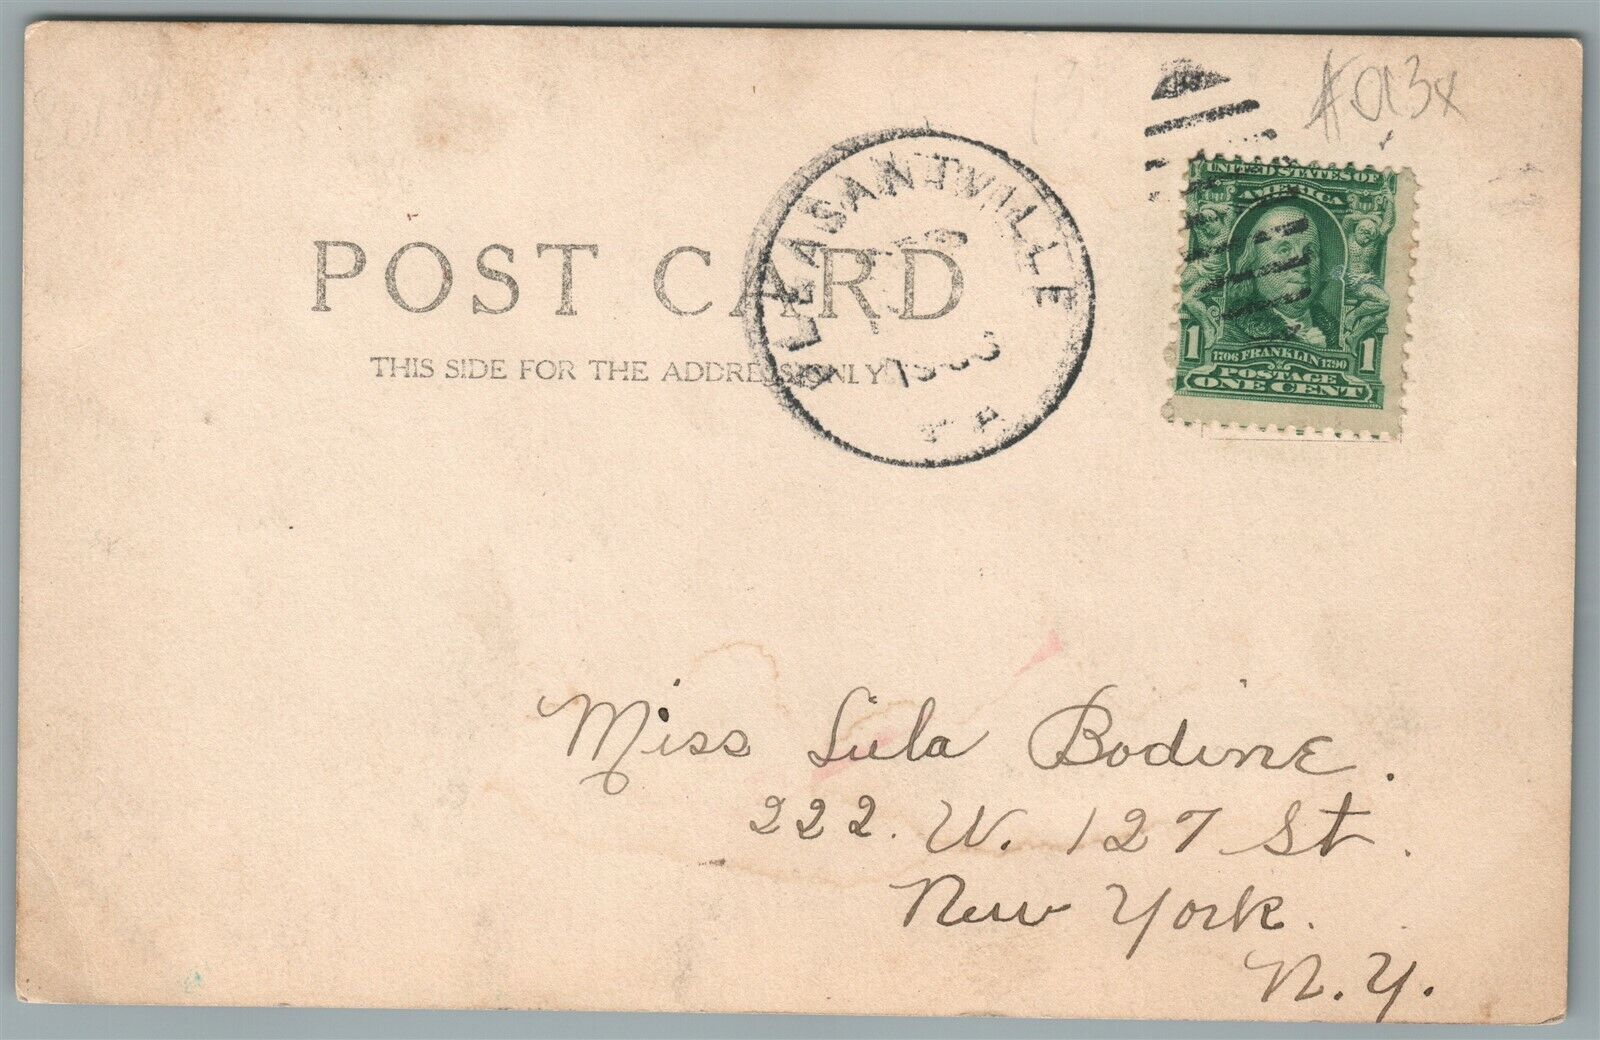 POST CARD
THIS SIDE FOR THE ADDRESS ONLY
PLEASANTVILLE
UNITED STATES OF
AMERICA
1 1
1706 FRANKLIN 1790
POSTAGE
ONE CENT
Miss Lula Bodine.
222. W. 127 St.
New York.
N. Y.